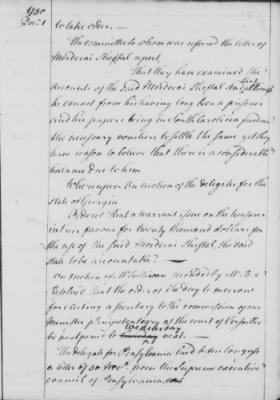 1780
Dec.r 1
to take order.—
The committee to whom was referred the letter of
Mordecai Sheftal report,
That they have examined the
account of the said Mordecai Sheftal and that though
he cannot from his having long been a prisoner
and his papers being in South Carolina produce
the necessary vouchers to settle the same yet they
have reason to believe that there is a considerable
balance due to him
Whereupon On motion of the delegates for the
state of Georgia
Ordered That a warrant issue on the treasurer
in their favour for twenty thousand dollars for
the use of the said Mordecai Sheftal, the said
state to be accountable.—
On motion of Mr Sullivan seconded by Mr. B
Resolved That the order of the day to morrow
for electing a secretary to the commission of our
minister plenipotentiary at the court of Versailles
be postponed to wednesday next.—
The delegate for Pensylvania laid before Congress
a letter of 30 Nov.r from the supreme executive
council of Pensylvania